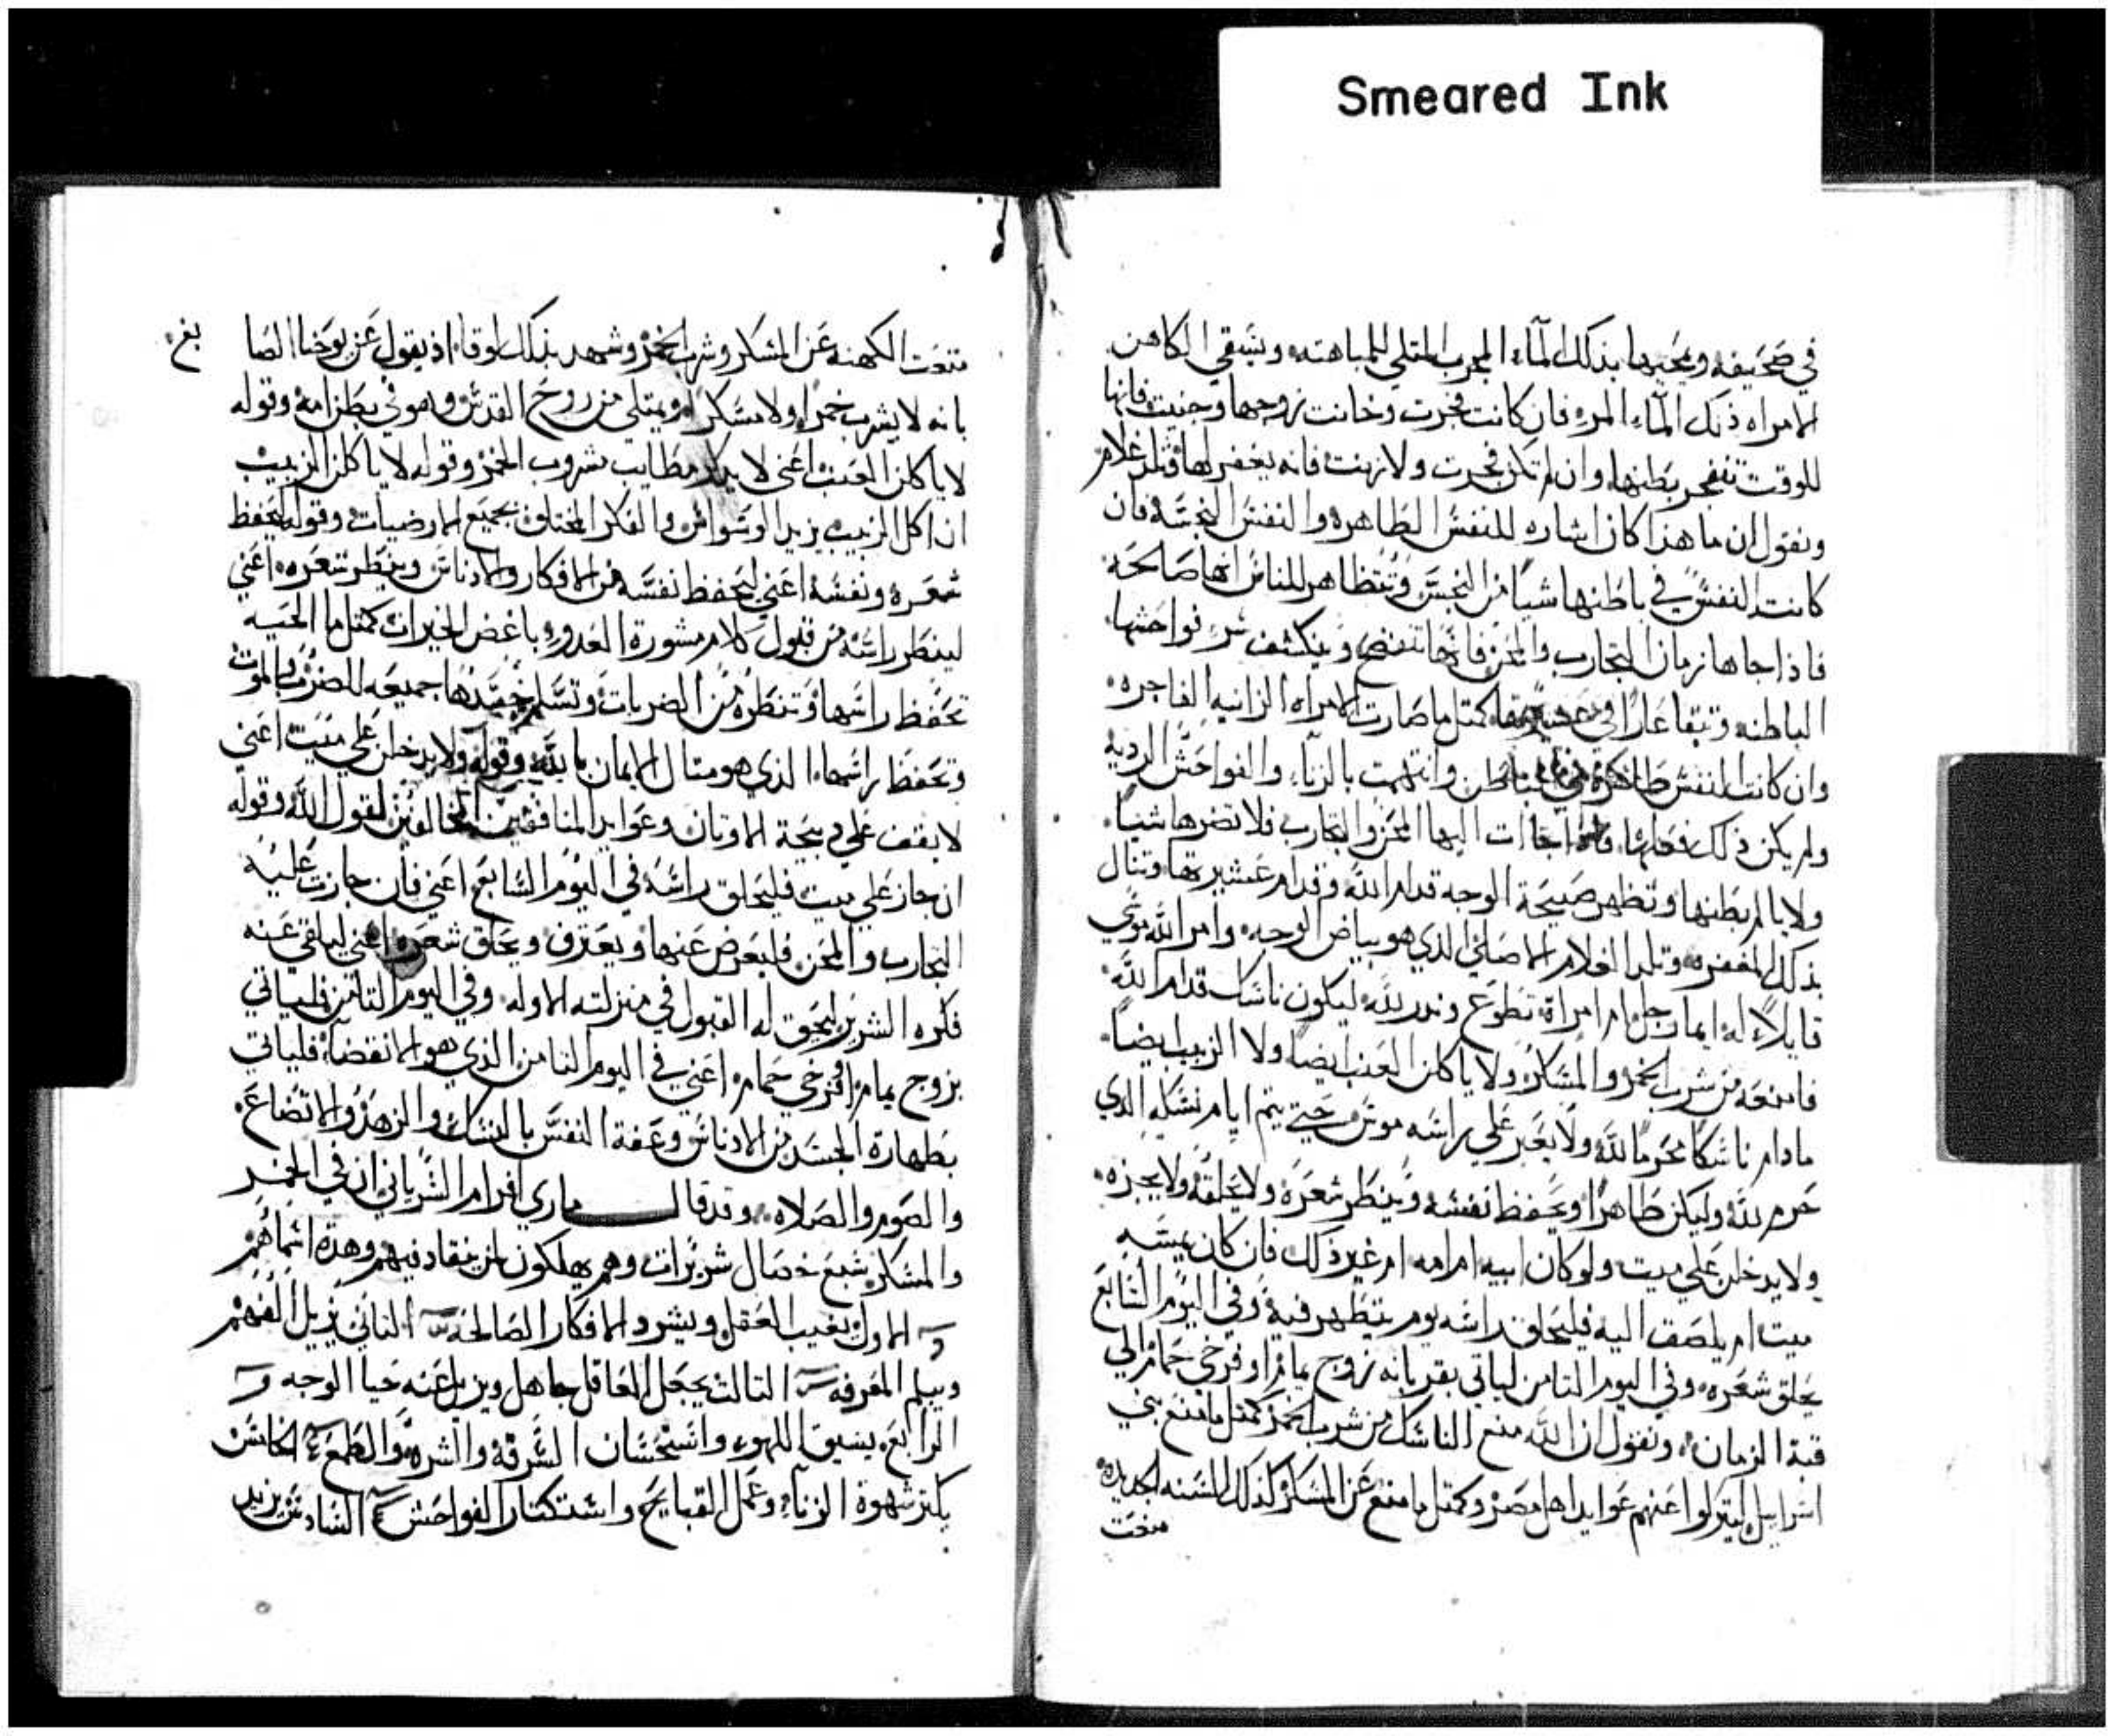 Smeared Ink
في صحيفه ويمحيها بذلك المآء المجرب المتلي للمباهته ويسقي الكاهن
الامراه ذلك المآء المره فان كانت فجرت وخانت زوجها وجنيت فانها
للوقت تنفجر بطنها وان لم تكن فجرت ولا زنت فانه يغفر لها وتلد غلام
ونقول ان ما هذا كان اشاره للنفس الطاهره والنفس النجسه فان
كانت النفس في باطنها شيا من النجس وتتظاهر للناس انها صالحه
فاذا جاها زمان التجارب والمحن فانها تفتضح وينكشف شر فواحشها
الباطنه وتبقا عارا في كمثل ما صارت الامراه الزانيه الفاجره
وان كانت النفس طاهره وانتهمت بالزناء والفواحش الرديه
ولم يكن ذلك فعلها فاذا جاات اليها المحن والتجارب فلا تضرها شيا
ولا يالم بطنها وتظهر صبيحة الوجه قدام الله وقدام عشيرتها وتنال
بذلك المغفره وتلد الغلام الاصلي الذي هو بياض الوجه وامر الله موسي
قايلاً له ايما رجل ام امراة تطوع وندر لله ليكون ناسك قدام الله
فامنعه من شرب الخمر والمسكر ولا ياكلن العنب ايضا ولا الزبيب ايضاً
مادام ناسكا محرما لله ولا يعبر علي راسه موس حتي يتم ايام نسكه الدي
حرم لله وليكن طاهرا ويحفظ نفسه وينظر شعره ولا يحلقه ولا يجزه
ولا يدخلن علي ميت ولو كان ابيه ام امه ام غير ذلك فان كان يمسه
ميت ام يلصق اليه فليحلق راسه يوم يتطهر فيه وفي اليوم السابع
يحلق شعره وفي اليوم الثامن لياتي بقربانه زوج يمام او فرخي حمام الي
قبة الزمان ونقول ان الله منع الناسك من شرب الخمر كمثل ما منع بني
اسراييل ليتركوا عنهم عوايد اهل مصر وكمثل ما منع عن المسكر كذلك السنه الجديده
منعت
منعت الكهنه عن المسكر وشرب الخمر وشهد بذلك لوقا اذ يقول عن يوحنا الصا بغ
بانه لا يشرب خمرا ولا مسكرا ويمتلي من روح القدس وهو في بطن امه وقوله
لا ياكلن العنب اعني لا يذكر مطايب شروب الخمر وقوله لا ياكلن الزبيب
ان اكل الزبيب يزيد الوسواس والفكر المختلف بجميع الارضيات وقوله ليحفظ
شعره ونفسه اعني ليحفظ نفسه من الافكار والادناس وينظر شعره اعني
لينظر راسه من قبول كلام مشورة العدو باغض الخيرات كمثل ما الحيه
تحفظ راسها وتنظره من الضربات وتسلم جسدها جميعه للضرب والموت
وتحفظ راسها الذي هو مثال الايمان بالله وقوله ولا يدخلن علي ميت اعني
لا يقف علي دبيحة الاوتان وعوايد المنافقين المخالفين لقول الله وقوله
ان جاز علي ميت فليحلق راسه في اليوم السابع اعني فان جازت عليه
التجارب والمحن فليعرض عنها ويعترف ويحلق شعره اعني ليلقي عنه
فكره الشرير ليحق له القبول في منزلته الاوله وفي اليوم الثامن فلياتي
بزوج يمام او فرخي حمام اعني في اليوم الثامن الذي هو الانقضآ فلياتي
بطهارة الجسد من الادناس وعفة النفس بالنسك والزهد والاتضاع
والصوم والصلاه وقد قال ماري افرام السرياني ان في الخمر
والمسكر سبع خصال شريرات وهم يهلكون لمن ينقاد فيهم وهذه اسماهم
الاول يغيب العقل ويشرد الافكار الصالحه الثاني يزيل الفهم
ويبلم المعرفه الثالث يجعل العاقل جاهل ويزيل عنه حيا الوجه
الرابع يسبق اللهو واستحسان السرقه والشره والطمع الخامس
يكتر شهوة الزناء وعمل القبايح واستكتار الفواحش السادس يزيد